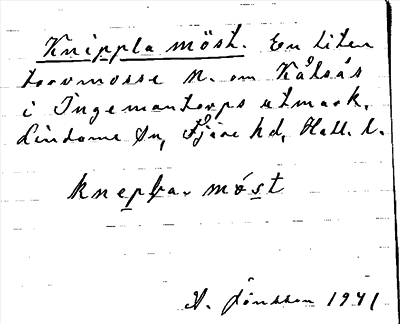 Knippla möst. En liten
torvmosse N. om Kålsås
i Ingemantorps utmark,
Lindome sn, Fjäre hd, Hall. l.
knepla- möst
A. Jönsson 1941